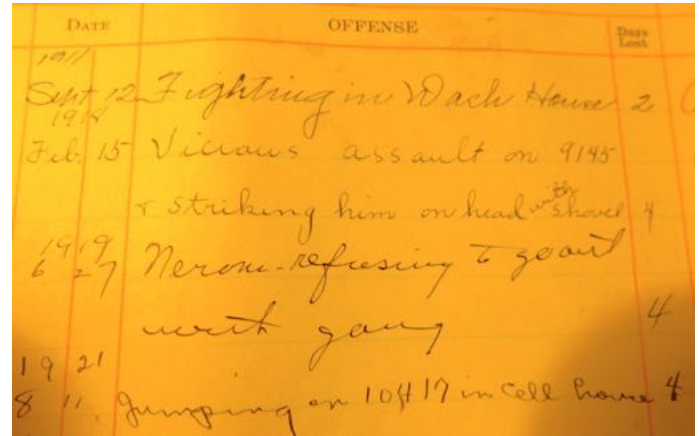 DATE OFFENSE Days Lost
1911
Sept 12 Fighting in Wach House 2
1918
Feb. 15 Vicious assault on 9145
& striking him on head with shovel 4
1919
6 27 refusing to go out
with gang 4
19 21
8 11 Jumping on 10417 in cell house 4